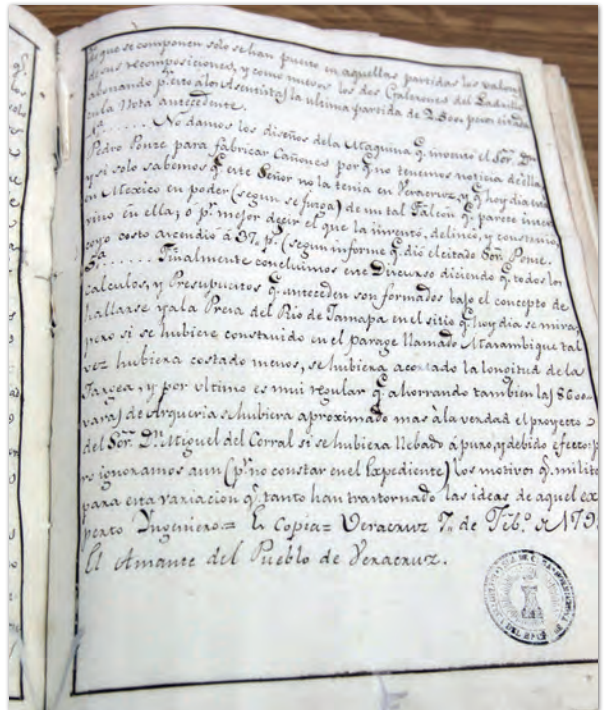 de que se componen solo se han puesto en aquellas partidas los valores
de sus recomposiciones, y como nuevos los dos Galerones del Ladrillo
abonando p.r esto á los Asentistas la ultima partida de 2.800. pesos citada
en la Nota antecedente.
4.a ...... No damos los diseños dela Maquina q. inventó el Sor. Dn.
Pedro Ponze para fabricar Cañones por q. no tenemos noticia de ella,
y si solo sabemos q. este Señor no la tenia en Veracruz, y q. hoy dia está
en Mexico en poder (segun se juzga) de un tal Falcon q. parece inter
vino en ella; ó p.r mejor decir el que la inventó, delineó, y construió,
cuyo costo ascendió á 97. p.s (segun informe q. dió el citado Sor. Ponze.
5.a ...... Finalmente concluimos este Discurso diciendo q. todos los
calculos, y Presupuestos q. anteceden son formados bajo el concepto de
hallarse ya la Presa del Rio de Jamapa en el sitio q. hoy dia se mira;
pero si se hubiese construido en el parage llamado Matambique tal
vez hubiera costado menos, se hubiera acortado la longitud de la
Targea, y por ultimo es mui regular q. ahorrando tambien las 8600
varas de Arqueria se hubiera aproximado mas à la verdad el proyecto
del Sor. Dn. Miguel del Corral si se hubiera llebado á puro, y debido efecto; p
ro ignoramos aun (p.r no constar en el Expediente) los motivos q. militaron
para esta variacion q. tanto han trastornado las ideas de aquel ex
perto Ingeniero = Es Copia = Veracruz 7,, de Feb.o de 179
El Amante del Pueblo de Veracruz.